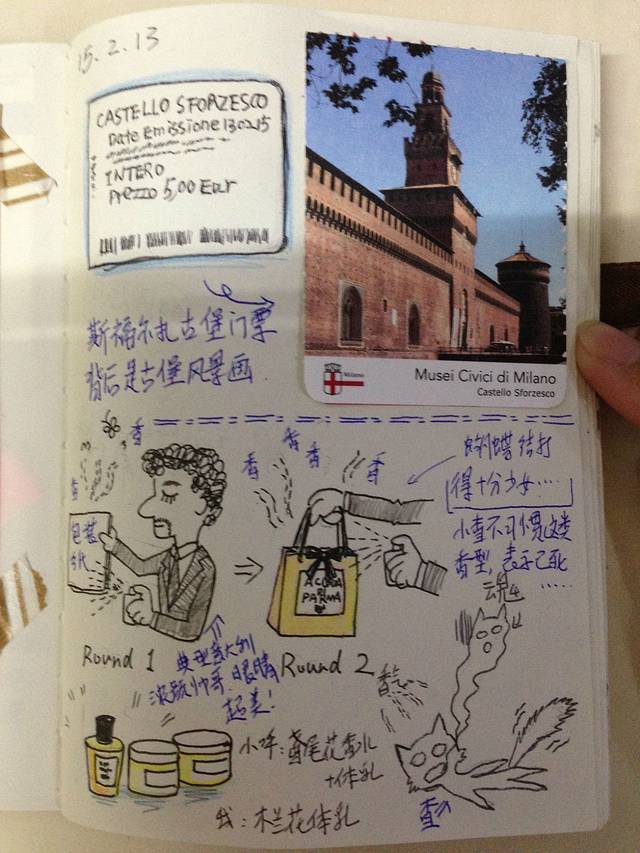 15.2.13
CASTELLO SFORZESCO
Date Emissione 130215
INTERO
Prezzo 5,00 Eur
Milano
Musei Civici di Milano
Castello Sforzesco
斯福尔扎古堡门票
背后是古堡风景画
香
香
香
香
香
香
蝴蝶结打
得十分少女……
小查不习惯这类
香型,表示已死
……
包装
纸
ACQUA
DI
PARMA
魂
Round 1
典型意大利
帅哥.眼睛
超美!
Round 2
香
小咩:鸢尾花香水
+体乳
我:木兰花体乳
查